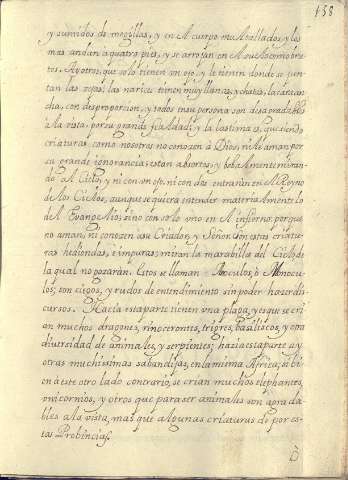 158
y sumidos de mexillas, y en el cuerpo mui bellados, y los
mas andan a quatro pies, y se arrojan en el suelo como bru
tos. Ay otros, que solo tienen un ojo, y le tienen donde se jun
tan las zejas; las narices tienen muy llanas, y chatas, la cara an
cha, con desproporcion, y todos en su persona son desagradables
à la vista, por su grande fealdad; y la lastima es, que siendo
criaturas, como nosotros no conozen à Dios, ni le aman por
su grande ignorancia; estan absortos, y bobamente miran-
do al Cielo, y ni con un ojo, ni con dos entraran en el Reyno
de los Cielos, aunque se quiera intender materialmente lo
del Evangelio: sino con solo uno en el infierno, porque
no aman, ni conozen a su Criador, y Señor. Son estas criatu-
ras hediondas, è impuras; miran la marabilla del Cielo, de
la qual no gozaràn. Estos se llaman Monoculos, ò Monocu-
los; son ciegos, y rudos de entendimiento sin poder hazer di-
cursos. Hacia esta parte tienen una plaga, y es que se cri-
an muchos dragones, rinocerontes, trigres, basiliscos, y otra
diversidad de animales, y serpientes; hazia esta parte ay
otras muchissimas sabandijas, en la misma Africa; si bi-
en à este otro lado contrario, se crian muchos elephantes,
unicornios, y otros que para ser animales son agrada-
bles a la vista, mas que algunas criaturas de por es-
tas Probincias.